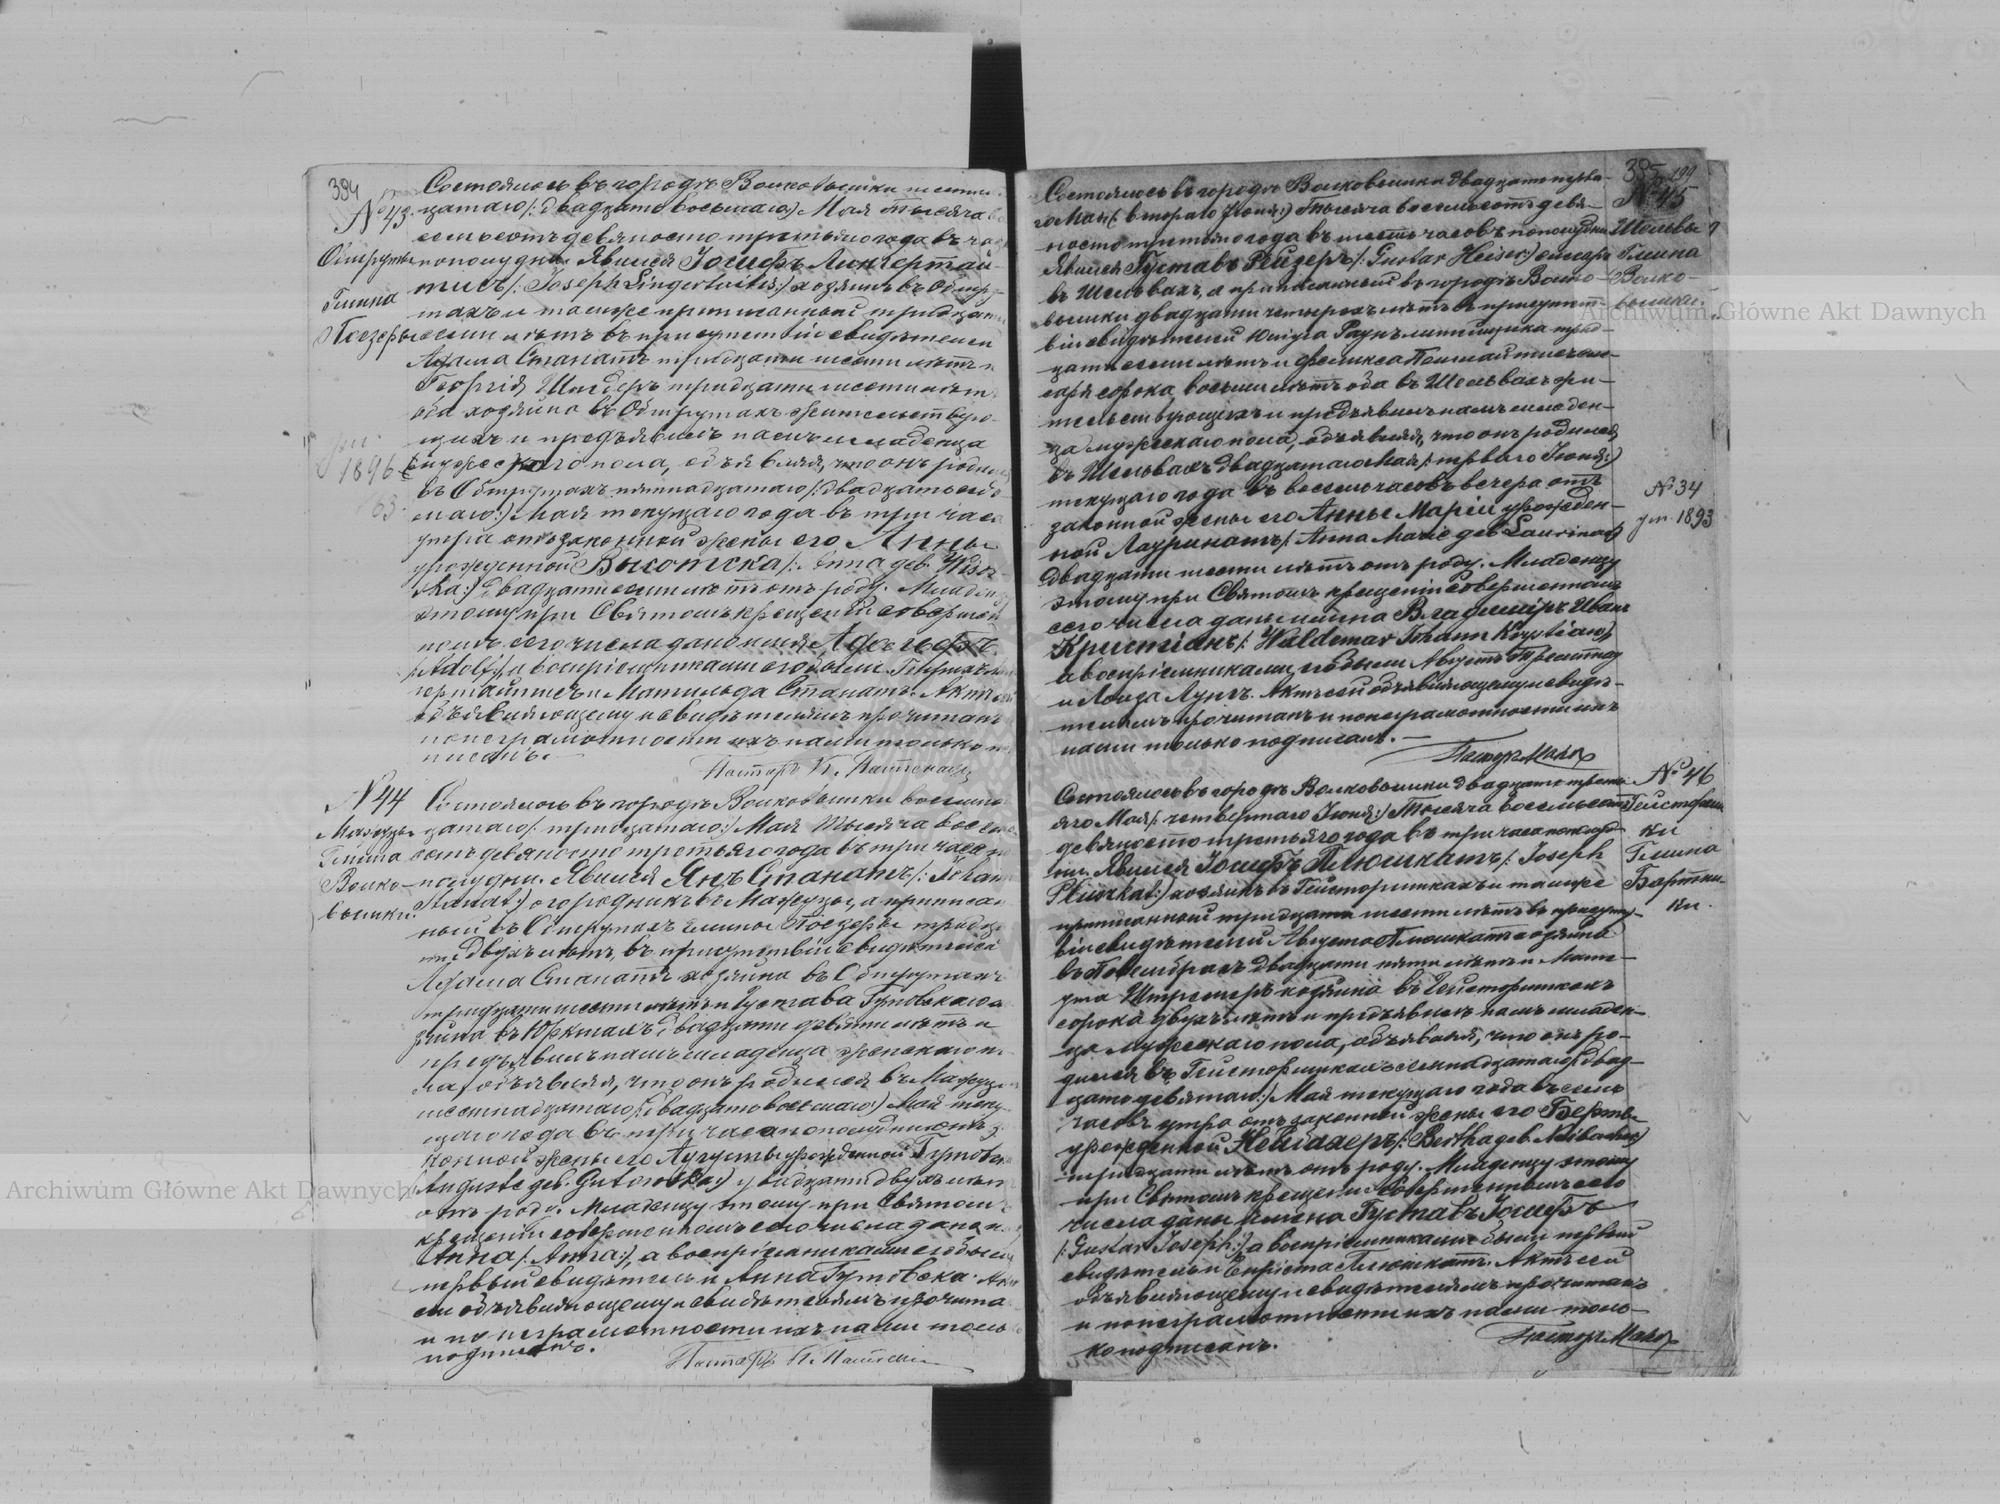 394
№ 43.
Обшруты
Гмина
Поезеры
ум.
1896
63.
Состоялось въ городѣ Волковышки шестнад-
цатаго /: двадцать восьмаго:/ Мая тысяча во-
семьсотъ девяносто третьяго года въ часъ
пополудни. Явился Іосифъ Лингертай-
тисъ /: Joseph Lingertaitis:/ хозяинъ въ Обшру-
тахъ и тамже приписанный тридцати
семи лѣтъ въ присутствіи свидѣтелей
Адама Станатъ тридцати шести лѣтъ и
Георгія Шнидеръ тридцати шести лѣтъ
оба хозяина въ Обшрутахъ жительствую-
щихъ и предъявилъ намъ младенца
мужескаго пола, объявляя, что онъ родился
въ Обшрутахъ пятнадцатаго /: двадцать седь-
маго:/ Мая текущаго года въ три часа
утра отъ законной жены его Анны
урожденной Высотска /: Anna geb. Wisoz-
ka:/ двадцати семи лѣтъ отъ роду. Младенцу
этому при Святомъ крещеніи совершен-
номъ сего числа дано имя Адольфъ
/: Adolf:/, а воспріемниками его были
гертайтисъ и Матильда Станатъ. Актъ сей
объявляющему и свидѣтелямъ прочитанъ
и по неграмотности ихъ нами только под-
писанъ.
Пасторъ К.
№ 44
Мажуцы
Гмина
Волко-
вышки.
Состоялось въ городѣ Волковышки восемнад-
цатаго /: тридцатаго:/ Мая тысяча восемь-
сотъ девяносто третьяго года въ три часа по-
полудни. Явился Янъ Станатъ /: Johann
Stanat:/ огородникъ въ Мажуцы, а приписан-
ный въ Обшрутахъ Гмины Поезеры тридца-
ти двухъ лѣтъ, въ присутствіи свидѣтелей
Адама Станатъ хозяина въ Обшрутахъ
тридцати шести лѣтъ и Густава Гутовскаго хо-
зяина въ Юркшахъ двадцати девяти лѣтъ и
предъявилъ намъ младенца женскаго по-
ла, объявляя, что онъ родился въ Мажуцы
шестнадцатаго /: двадцать восьмаго:/ Мая теку-
щаго года въ три часа пополудни отъ за-
конной жены его Августы урожденной Гутовска
/: Auguste geb. Gutowska:/ двадцати двухъ лѣтъ
отъ роду. Младенцу этому при Святомъ
крещеніи совершенномъ сего числа дано имя
Анна /: Anna:/, а воспріемниками его были
первый свидѣтель и Анна Гутовска. Актъ
сей объявляющему и свидѣтелямъ прочитанъ
и по неграмотности ихъ нами только
подписанъ.
Пасторъ К.
395
199
№ 45
Шельвы
Гмина
Волко-
вышки.
№ 34
ум. 1893
Состоялось въ городѣ Волковышки двадцать перва-
го Мая /: втораго Іюня:/ тысяча восемьсотъ девя-
носто третьяго года въ шесть часовъ пополудни
Явился Густавъ Гейзеръ /: Gustav Heiser:/
въ Шельвахъ, а приписанный въ городѣ Волко-
вышки двадцати четырехъ лѣтъ въ присутст-
віи свидѣтелей Юліуса Раунъ трид-
цати семи лѣтъ и Феликса
саря сорока восьми лѣтъ оба въ Шельвахъ жи-
тельствующихъ и предъявилъ намъ младен-
ца мужескаго пола, объявляя, что онъ родился
въ Шельвахъ двадцатаго Мая /: перваго Іюня:/
текущаго года въ восемь часовъ вечера отъ
законной жены его Анны Маріи урожден-
ной Лауринатъ /: Anna Marie geb. Laurinat:/
двадцати шести лѣтъ отъ роду. Младенцу
этому при Святомъ крещеніи совершенномъ
сего числа даны имена Владиміръ Иванъ
Кристіанъ /: Waldemar Johann Krystian:/
а воспріемниками его были Августъ
и Лоиза Лунгъ. Актъ сей объявляющему и свидѣ-
телямъ прочитанъ и по неграмотности ихъ
нами только подписанъ. —
Пасторъ
№ 46
ки
Гмина
Бартни-
ки.
Состоялось въ городѣ Волковышки двадцать треть-
яго Мая /: четвертаго Іюня:/ тысяча восемьсотъ
девяносто третьяго года въ три часа пополуд-
ни. Явился Іосифъ Плюшкатъ /: Joseph
Pliuszkat:/ хозяинъ въ Гейсторишкахъ и тамже
приписанный тридцати шести лѣтъ въ присутст-
віи свидѣтелей Августа Плюшкатъ хозяина
въ двадцати пяти лѣтъ и Мате-
уша хозяина въ Гейсторишкахъ
сорока двухъ лѣтъ и предъявилъ намъ младен-
ца мужескаго пола, объявляя, что онъ ро-
дился въ Гейсторишкахъ семнадцатаго /: двад-
цать девятаго:/ Мая текущаго года въ семь
часовъ утра отъ законной жены его Берты
урожденной Нейбахеръ /: Bertha geb. Neibacher:/
тридцати лѣтъ отъ роду. Младенцу этому
при Святомъ крещеніи совершенномъ сего
числа даны имена Густавъ Іосифъ
/: Gustav Joseph:/, а воспріемниками были первый
свидѣтель и Плюшкатъ. Актъ сей
объявляющему и свидѣтелямъ прочитанъ
и по неграмотности ихъ нами толь-
ко подписанъ.
Пасторъ
Archiwum Główne Akt Dawnych
Archiwum Główne Akt Dawnych